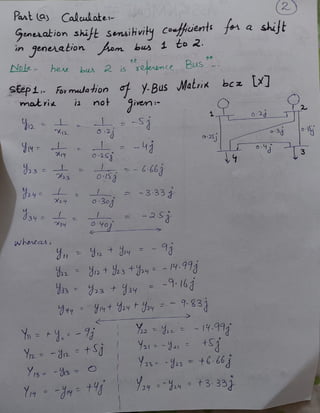 2
Part (a) Calculate:-
Generation shift sensitivity coefficients for a shift
in generation from bus 1 to 2.
Note:- here bus 2 is "reference Bus".
Step 1:. Formulation of Y-Bus Matrix bcz [X]
matrix is not given:-
y12 = 1/x12 = 1/0.2j = -5j
y14 = 1/x14 = 1/0.25j = -4j
y23 = 1/x23 = 1/0.15j = -6.66j
y24 = 1/x24 = 1/0.30j = -3.33j
y34 = 1/x34 = 1/0.40j = -2.5j
1 0.2j 2
0.25j 0.3j
0.4j
4 3
whereas,
y11 = y12 + y14 = -9j
y22 = y12 + y23 + y24 = -14.99j
y33 = y23 + y34 = -9.16j
y44 = y14 + y24 + y34 = -9.83j
Y11 = +y11 = -9j
Y12 = -y12 = +5j
Y13 = -y13 = 0
Y14 = -y14 = +4j
Y22 = y22 = -14.99j
Y21 = -y21 = +5j
Y23 = -y23 = +6.66j
Y24 = -y24 = +3.33j